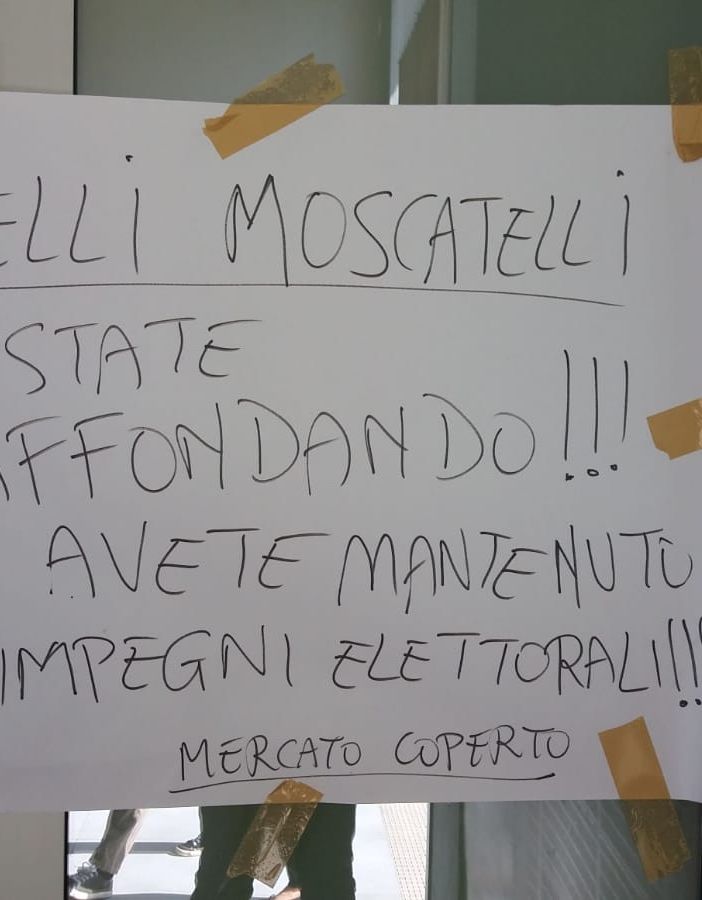 ELLI MOSCATELLI
STATE
AFFONDANDO!!!
AVETE MANTENUTO
IMPEGNI ELETTORALI!!!
MERCATO COPERTO